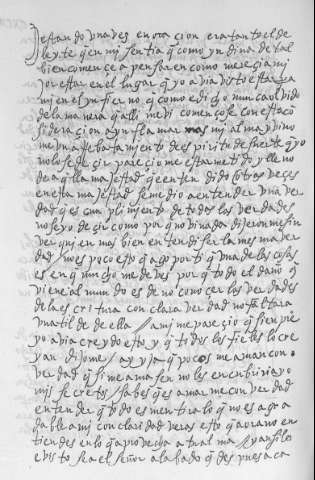 estando una vez en oraçion era tanto el de
leyte q̃ en mi sentia q̃ como yndina de tal
bien començe a pensar en como mereçia mi
jor estar en el lugar q̃ yo avia visto estar pa
ra mi en el ynfierno q̃ como e dicho nunca olvido
de la manera q̃ alli me vi començose con esta co
sideraçion a ynflamar mas mi alma y vino
me un a rrebatamiento de espiritu de suerte q̃ yo
no lo se deçir pareçiome estar metido y lle no
de aq̃lla majestad q̃ e entendido otras veçes
en esta majestad se me dio a entender una ver
dad q̃ es cunplimiento de todas las verdades
no se yo deçir como porq̃ no vi nada dijeronme sin
ver quien mas bien entendi ser la mesma ver
dad no es poco esto q̃ ago por ti q̃ una de las cosas
es en q̃ mucho me deves por q̃ todo el daño q̃
viene al mundo es de no conoçer las verdades
de la escritura con clara verdad no faltara
una til de de ella / a mi me pareçio q̃ sienpre
yo avia creydo esto y q̃ todos los fieles lo cre
yan dijome / ay yja q̃ pocos me aman con
verdad q̃ si me amasen no les encubriria yo
mis secretos / sabes q̃ es amarme con verdad
entender q̃ todo es mentira lo q̃ no es agra
dable a mi con claridad veras esto q̃ aora no en
tiendes en lo q̃ aprovecha a tu alma / y ansi lo
e visto sea el señor alabado q̃ des pues a ca